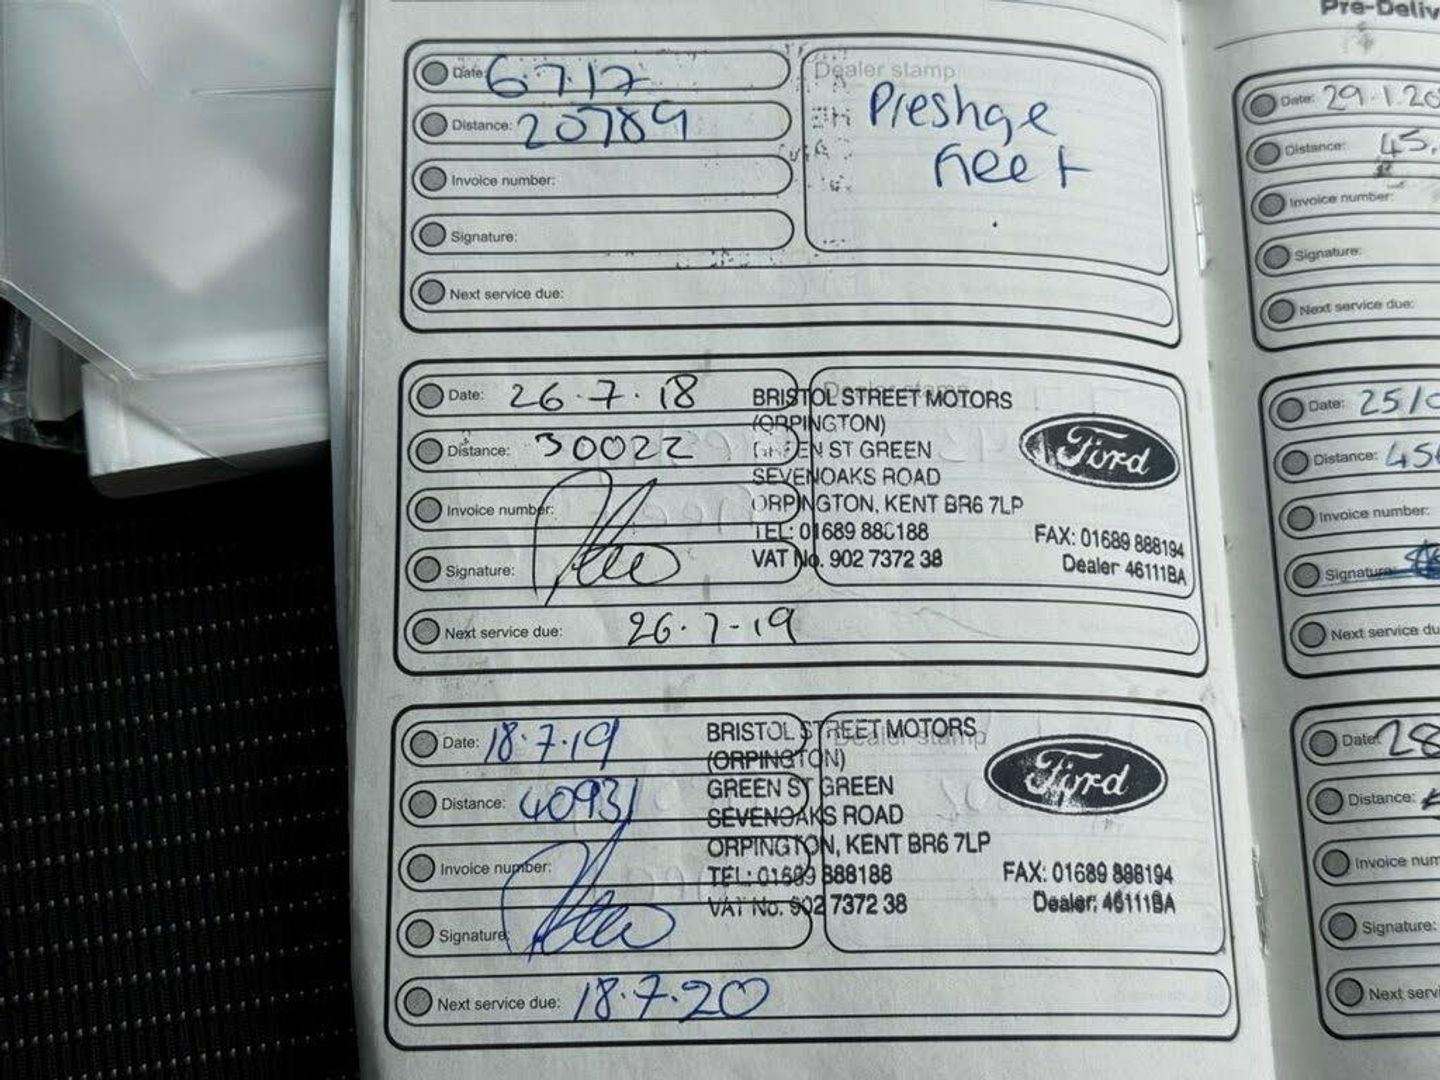 Date: 6.7.17
Distance: 20789
Invoice number:
Signature:
Next service due:
Dealer stamp
Prestige
Fleet
Date: 26.7.18
Distance: 30022
Invoice number:
Signature:
Next service due: 26.7-19
Dealer stamp
BRISTOL STREET MOTORS
(ORPINGTON)
GREEN ST GREEN
SEVENOAKS ROAD
ORPINGTON, KENT BR6 7LP
TEL: 01689 888188
VAT No. 902 7372 38
Ford
FAX: 01689 888194
Dealer 46111BA
Date: 18.7.19
Distance: 40931
Invoice number:
Signature:
Next service due: 18.7.20
Dealer stamp
BRISTOL STREET MOTORS
(ORPINGTON)
GREEN ST GREEN
SEVENOAKS ROAD
ORPINGTON, KENT BR6 7LP
TEL: 01689 888188
VAT No. 902 7372 38
Ford
FAX: 01689 888194
Dealer: 46111BA
Pre-Deliv
Date: 29.1.20
Distance: 45.
Invoice number:
Signature:
Next service due:
Date: 25/0
Distance: 456
Invoice number:
Signature:
Next service du
Date: 28
Distance:
Invoice num
Signature:
Next servi